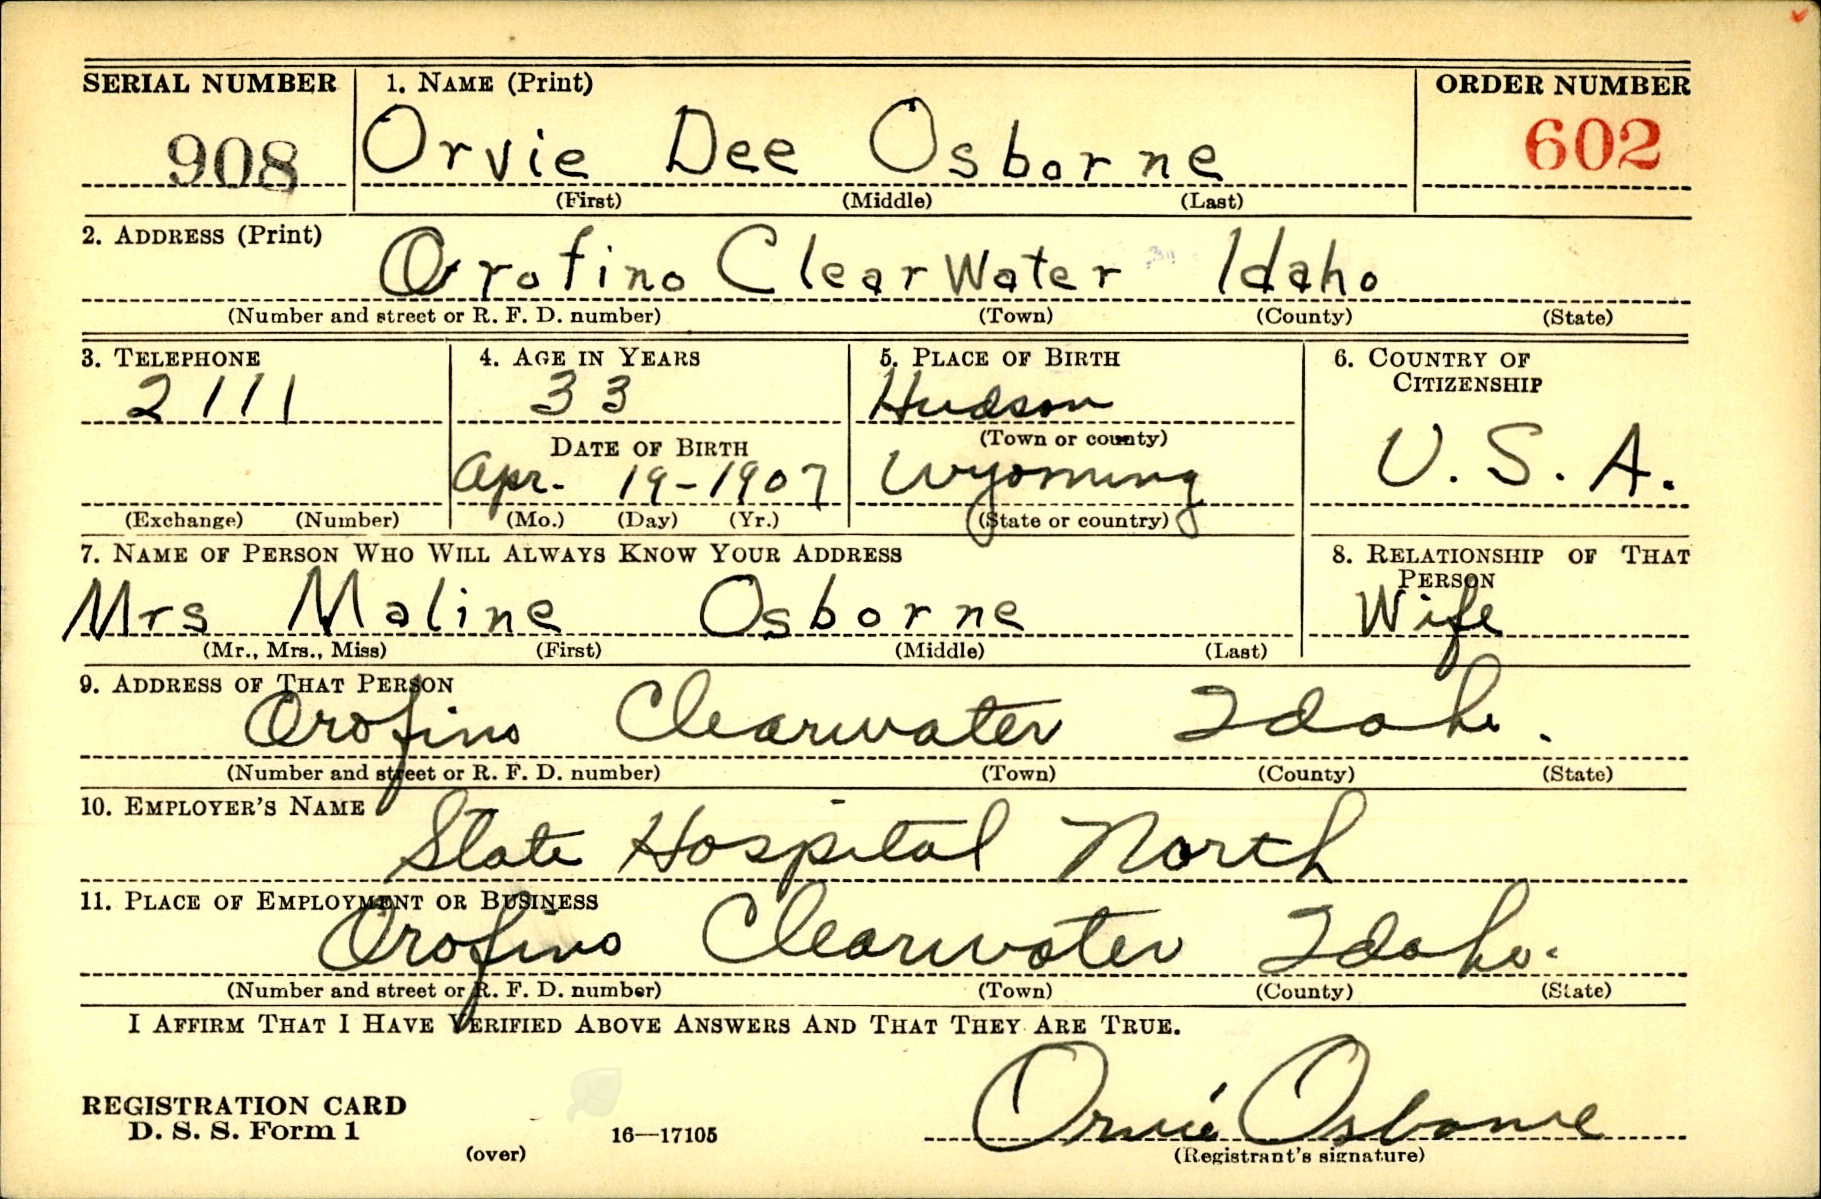 SERIAL NUMBER 1. NAME (Print) ORDER NUMBER
908 Orvie Dee Osborne 602
(First) (Middle) (Last)
2. ADDRESS (Print)
Orofino ClearWater Idaho
(Number and street or R. F. D. number) (Town) (County) (State)
3. TELEPHONE 4. AGE IN YEARS 5. PLACE OF BIRTH 6. COUNTRY OF
CITIZENSHIP
2111 33 Hudson
(Town or county)
DATE OF BIRTH
Apr. 19-1907 Wyoming U. S. A.
(Exchange) (Number) (Mo.) (Day) (Yr.) (State or country)
7. NAME OF PERSON WHO WILL ALWAYS KNOW YOUR ADDRESS 8. RELATIONSHIP OF THAT
PERSON
Mrs Maline Osborne Wife
(Mr., Mrs., Miss) (First) (Middle) (Last)
9. ADDRESS OF THAT PERSON
Orofino Clearwater Idaho.
(Number and street or R. F. D. number) (Town) (County) (State)
10. EMPLOYER'S NAME
State Hospital North
11. PLACE OF EMPLOYMENT OR BUSINESS
Orofino Clearwater Idaho.
(Number and street or R. F. D. number) (Town) (County) (State)
I AFFIRM THAT I HAVE VERIFIED ABOVE ANSWERS AND THAT THEY ARE TRUE.
REGISTRATION CARD
D. S. S. Form 1 16—17105 Orvie Osborne
(over) (Registrant's signature)